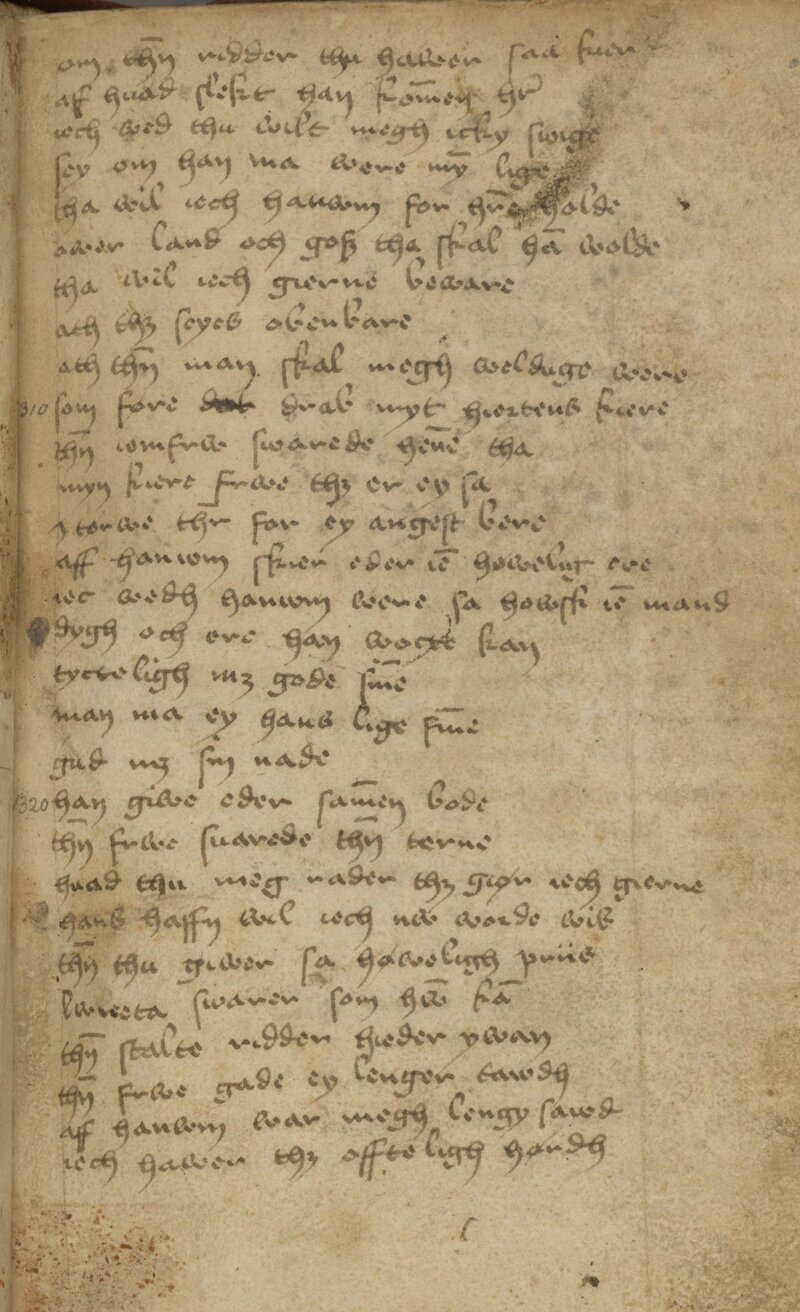 om thn̄ ridder thu hawer saa kær
aff huad slekt han kom̄en hr̄
iech wed thu wilt megh icky swige
sey om han ma were my̅ lige
tha wil iech hanwm for hn̄e holde
ower land och goß tha skal ha̅ wolde
tha wil iech gierne beware
ath thz seyes obenbare
ath thn̄ man skal megh welduge were
1310 som fore drab myt hiertens kiere
thn̄ iomfrw swarede hen̄e tha
myn kiere frwe thz er ey sa
y torwe thr̄ for ey angest bere
aff hanwm skier eder ie̅ høwelig ere
iec wedh hanwm were sa høwsk ie̅ mand
dygh och ere han woxt kan
tycteligh mz gode sin̄e
man ma ey hans lige fin̄e
gud mz sin nade
1320 han giwe eder sam̄en bode
thn̄ frwe suarede thn̄ terne
huad thu meg rader thz giør iech gierne
hans haffn wil iech nw worde wiß
thn̄ thu giwer sa høweligh priis
lwneta swarer som hw̅ ka̅
thn̄ stalte ridder hieder ywan
thn̄ frwe gade ey lenger tawdh
aff hanwm war megh lengy sawd
iech hawer thz offteligh hørdh